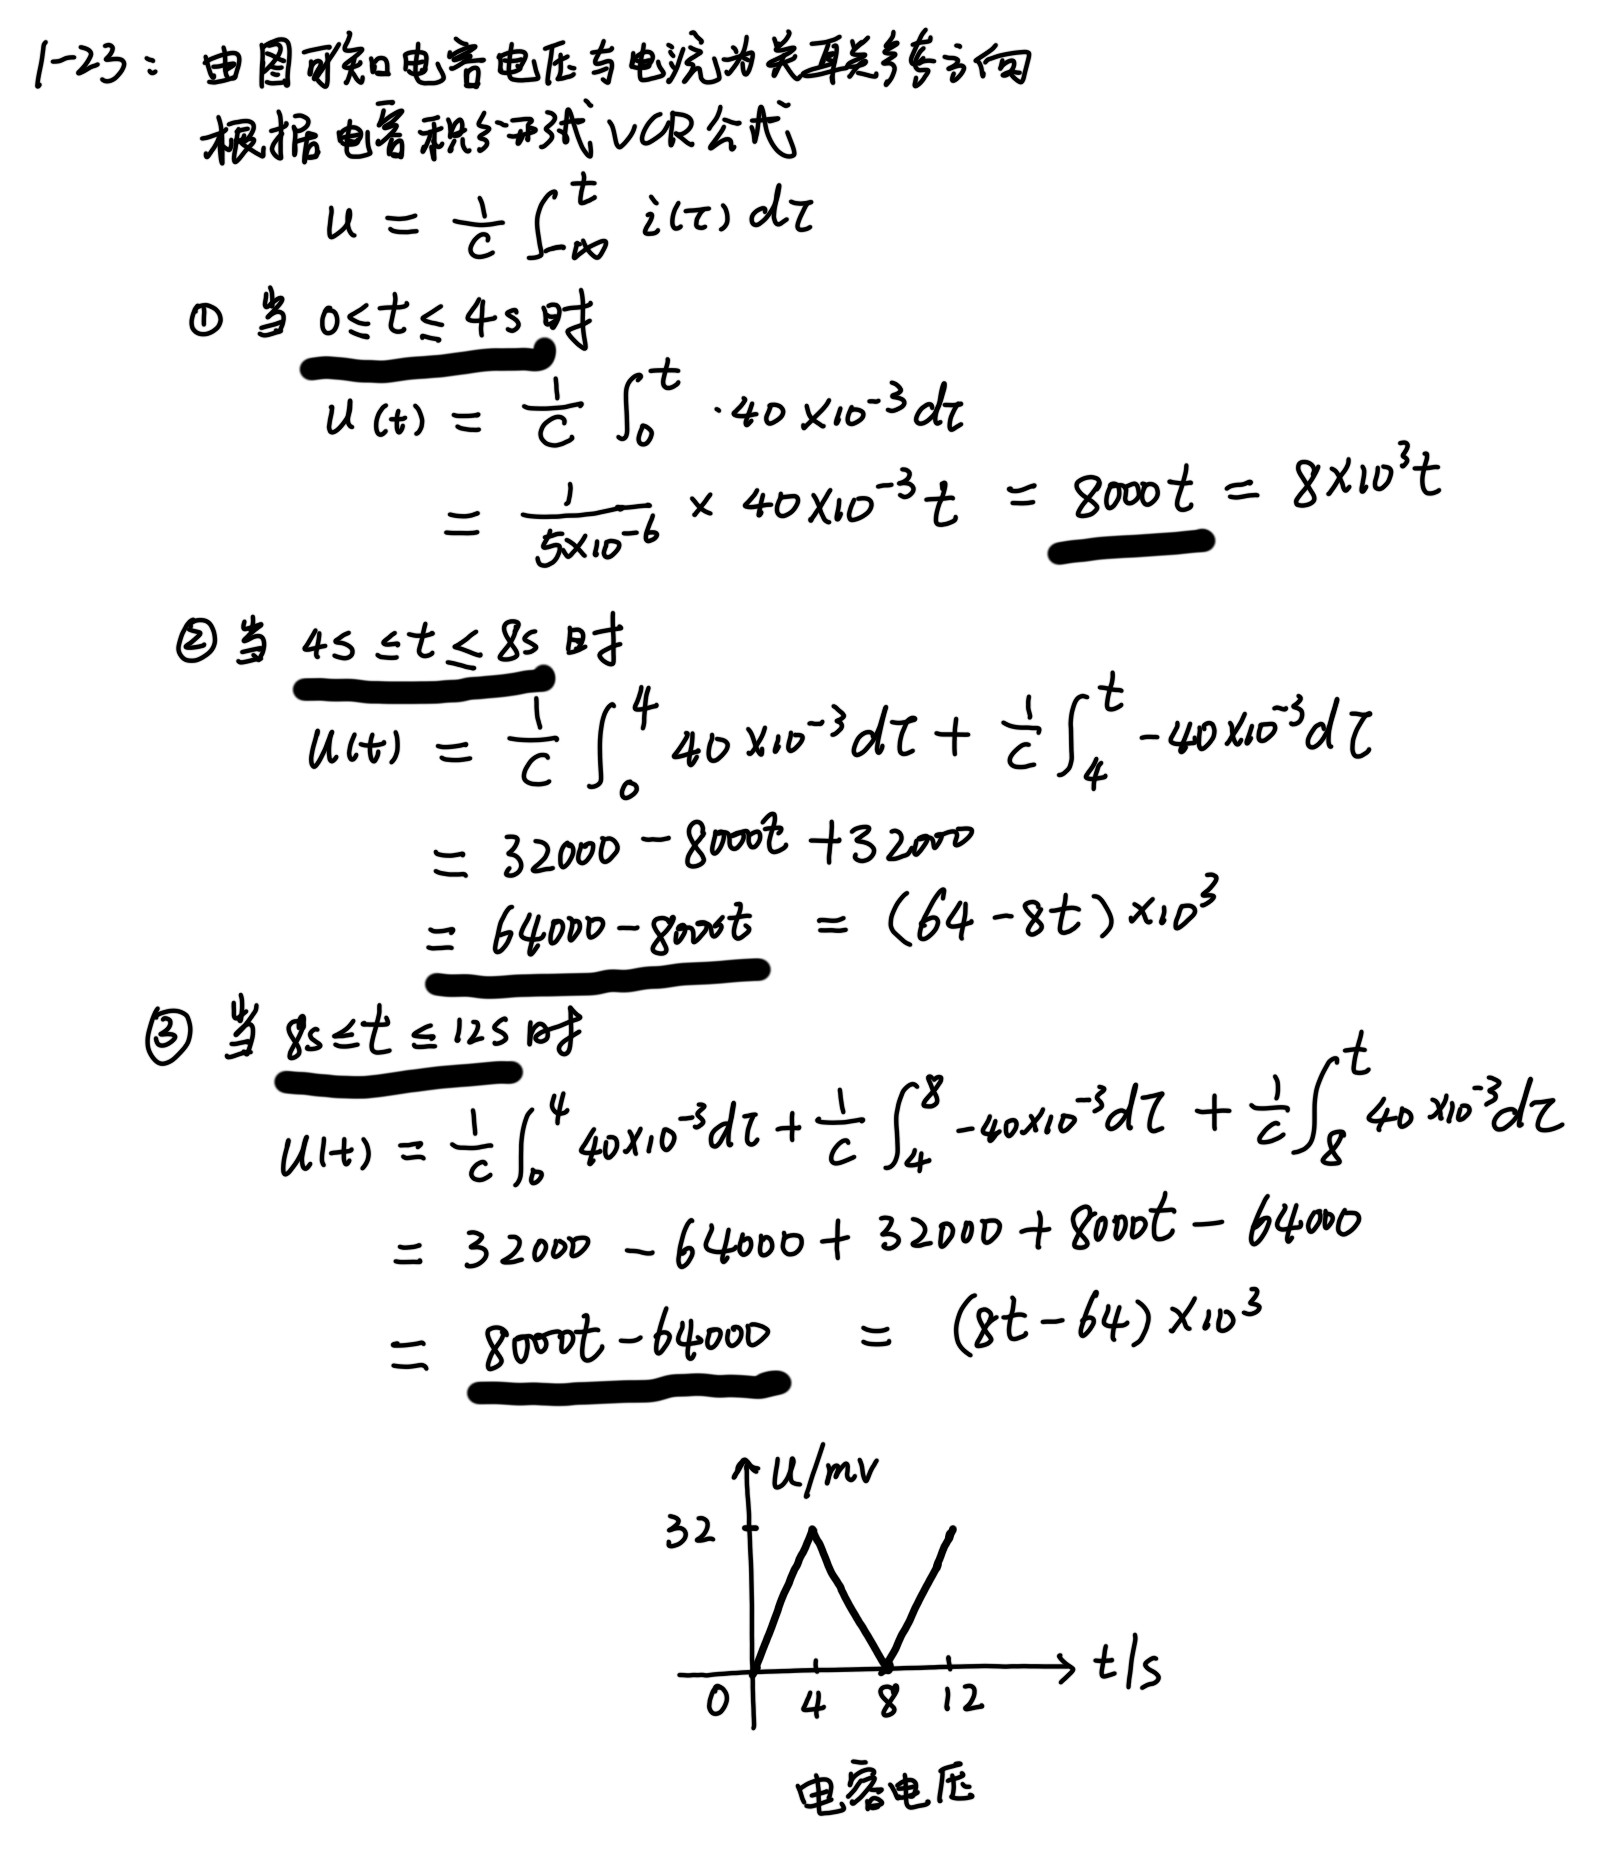 1-23：由图可知电容电压与电流为关联参考方向
根据电容积分形式VCR公式
u = 1/C ∫_{-∞}^{t} i(τ) dτ
① 当 0≤t≤4s时
u(t) = 1/C ∫_0^t ·40×10^{-3}dτ
= 1/(5×10^{-6}) × 40×10^{-3}t = 8000t = 8×10^3t
② 当 4s≤t≤8s时
u(t) = 1/C ∫_0^4 40×10^{-3}dτ + 1/C ∫_4^t -40×10^{-3}dτ
= 32000 - 8000t + 32000
= 64000 - 8000t = (64-8t)×10^3
③ 当 8s≤t≤12s时
u(t) = 1/C ∫_0^4 40×10^{-3}dτ + 1/C ∫_4^8 -40×10^{-3}dτ + 1/C ∫_8^t 40×10^{-3}dτ
= 32000 - 64000 + 32000 + 8000t - 64000
= 8000t - 64000 = (8t-64)×10^3
u/mv
32
t/s
0 4 8 12
电容电压